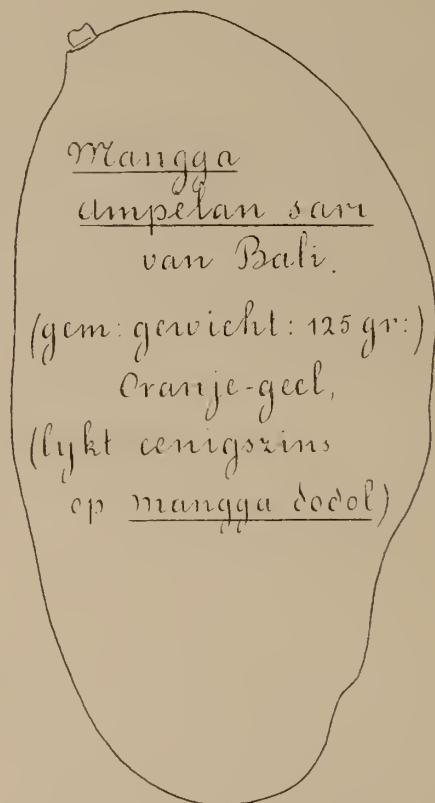 Mangga
ampelan sari
van Bali.
(gem: gewicht: 125 gr:)
Oranje-geel,
(lykt eenigszins
op mangga dodol)